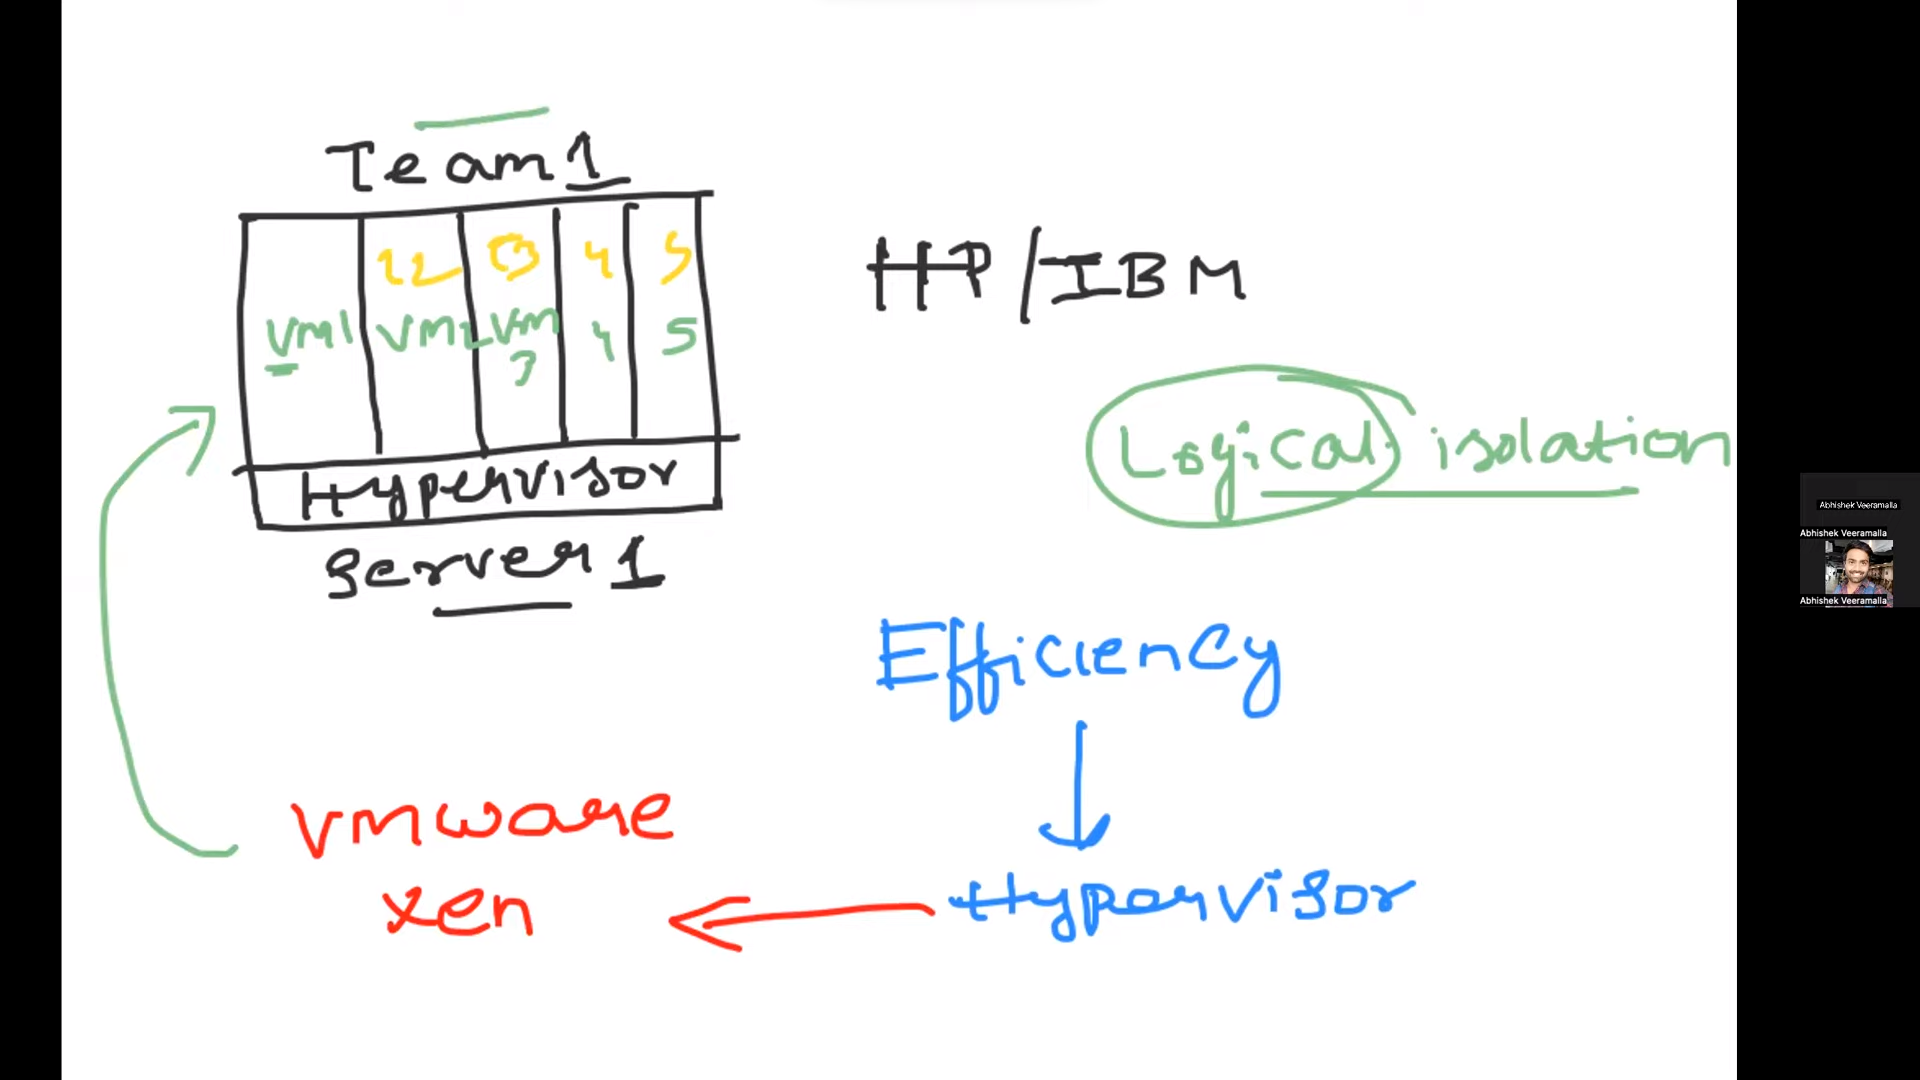 Team 1
22 3 4 5
VM1 VM2 VM 4 5
3
Hypervisor
Server 1
HP/IBM
Logical isolation
Efficiency
Hypervisor
vmware
xen
Abhishek Veeramalla
Abhishek Veeramalla
Abhishek Veeramalla